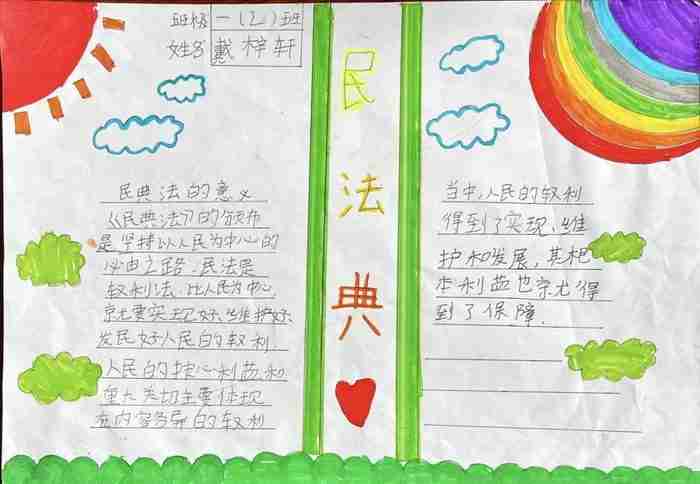 班级 一(2)班
姓名 戴梓轩
民典法的意义
《民典法》的颁布
是坚持以人民为中心的
必由之路.民法是
权利法.以人民为中心,
就要实现好、维护好、
发民好人民的权利
人民的核心利益和
重大关切主要体现
在内容各异的权利
民
法
典
当中,人民的权利
得到了实现、维
护和发展,其根
本利益也就得
到了保障.